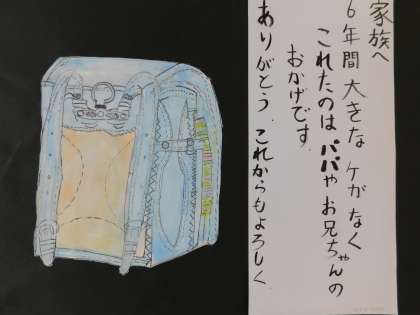 家族へ
6年間大きなケがなく
これたのはパパやお兄ちゃんの
おかげです。
ありがとう。これからもよろしく